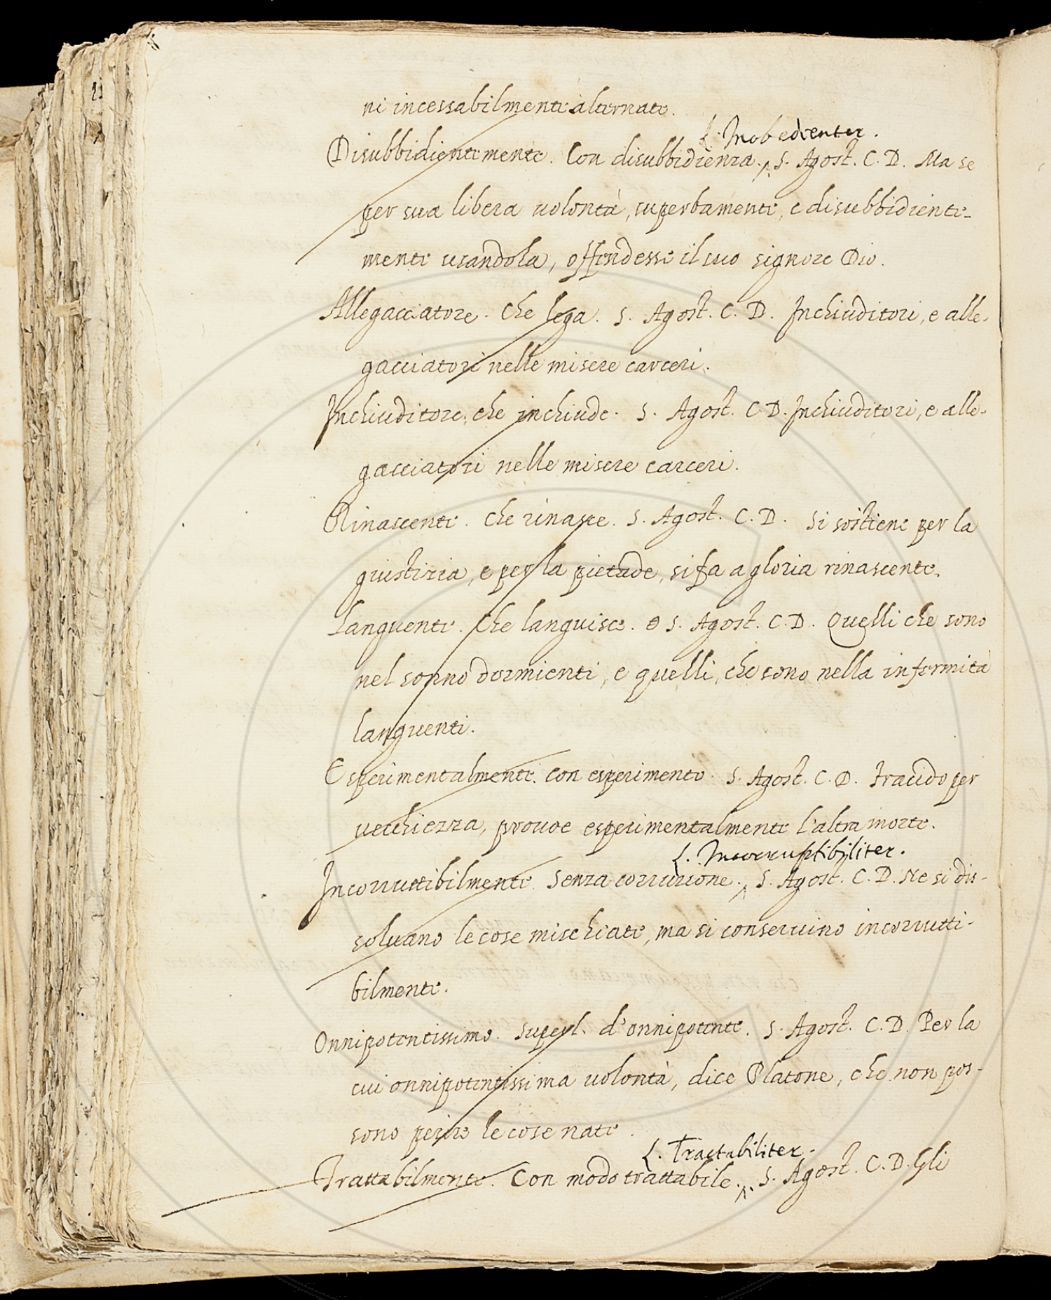 ni incessabilmente alternate.
L. Inobedienter.
Disubbidientemente. Con disubbidienza. ^ S. Agost. C. D. Ma se
per sua libera volontà, superbamente, e disubbidiente-
mente usandola, offendesse il suo signore Dio.
Allegacciatore. Che lega. S. Agost. C. D. Inchiuditori, e alle-
gacciatori nelle misere carceri.
Inchiuditore, che inchiude. S. Agost. C. D. Inchiuditori, e alle-
gacciatori nelle misere carceri.
Rinascente. Che rinasce. S. Agost. C. D. Si sostiene per la
giustizia, e per la pietade, si fa a gloria rinascente.
Languente. Che languisce. S. Agost. C. D. Quelli che sono
nel sonno dormienti, e quelli, che sono nella infermità
languenti.
Esperimentalmente. Con esperimento. S. Agost. C. D. per
vecchiezza, provoe esperimentalmente l'altra morte.
L. Incorruptibiliter.
Incorruttibilmente. Senza corruzione. ^ S. Agost. C. D. Ne si dis-
solvano le cose mischiate, ma si conservino incorrutti-
bilmente.
Onnipotentissimo. Superl. d'onnipotente. S. Agost. C. D. Per la
cui onnipotentissima volontà, dice Platone, che non pos-
sono perire le cose nate.
L. Tractabiliter.
Trattabilmente. Con modo trattabile. ^ S. Agost. C. D. Gli